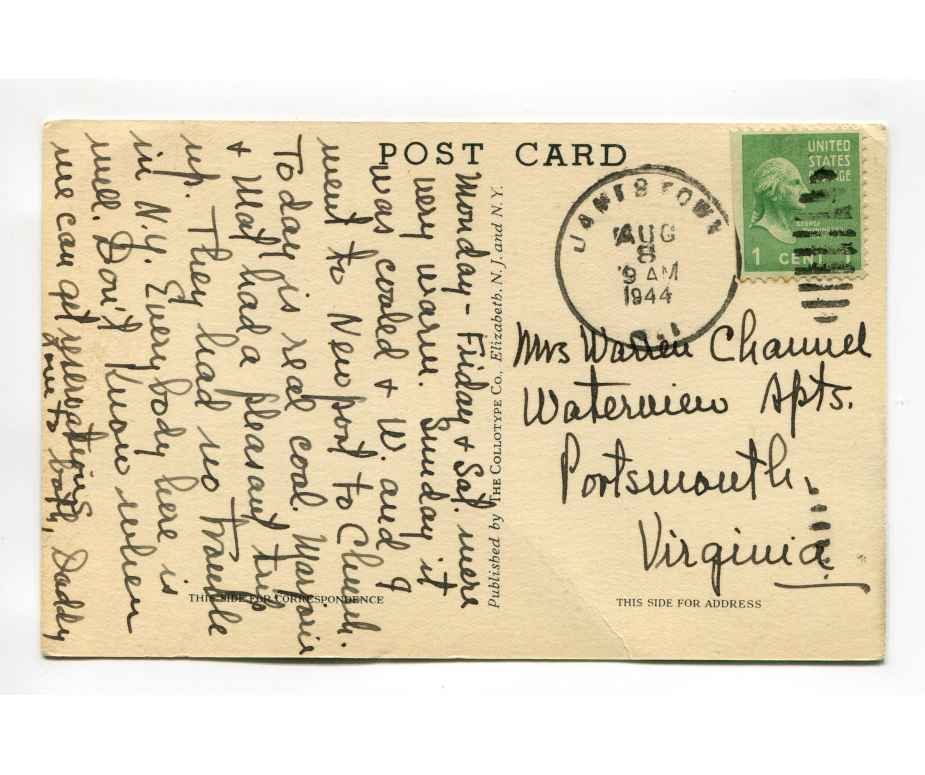 POST CARD
UNITED
STATES
POSTAGE
1 CENT 1
JAMESTOWN
AUG
8
9 AM
1944
R.I.
Monday - Friday & Sat. were
very warm. Sunday it
was cooled & W. and I
went to Newport to Church.
Today is real cool. Marjorie
& Mat had a pleasant trip
up. They had no trouble
in N.Y. Everybody here is
well. Don't know when
we can get reservations
Love to both, Daddy
Published by THE COLLOTYPE Co., Elizabeth, N. J. and N. Y.
Mrs Warren Channel
Waterview Apts.
Portsmouth,
Virginia
THIS SIDE FOR CORRESPONDENCE
THIS SIDE FOR ADDRESS